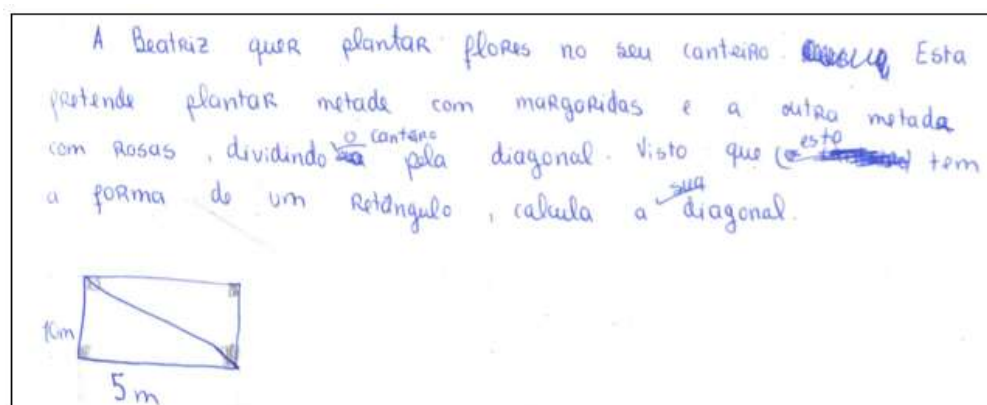 A Beatriz quer plantar flores no seu canteiro. Esta
pretende plantar metade com margaridas e a outra metade
com rosas, dividindo o canteiro pela diagonal. Visto que este tem
a forma de um retângulo, calcula a sua diagonal.
5m